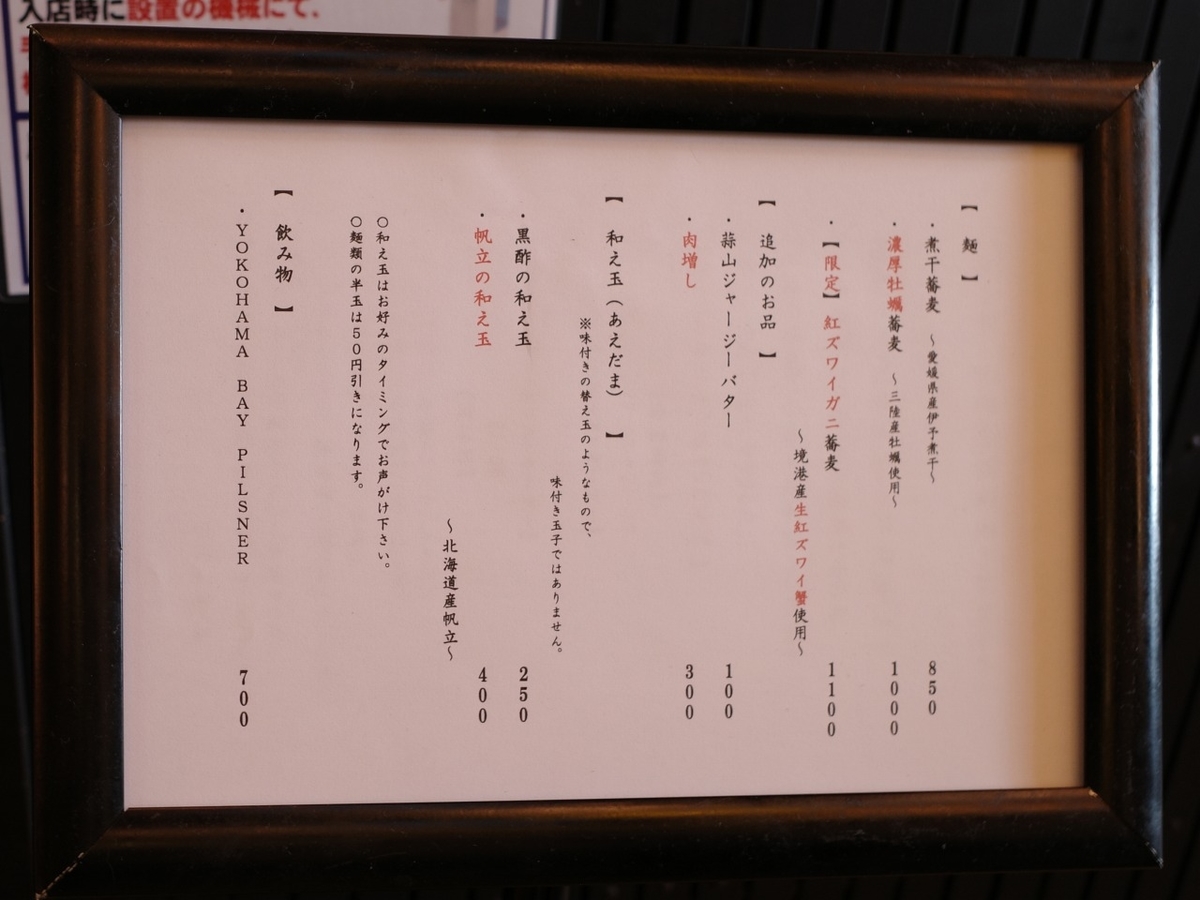 入店時に設置の機械にて、
【 麺 】
・煮干蕎麦 ～愛媛県産伊予煮干～ 850
・濃厚牡蠣蕎麦 ～三陸産牡蠣使用～ 1000
・【限定】紅ズワイガニ蕎麦 1100
～境港産生紅ズワイ蟹使用～
【 追加のお品 】
・蒜山ジャージーバター 100
・肉増し 300
【 和え玉（あえだま） 】
※味付きの替え玉のようなもので、
味付き玉子ではありません。
・黒酢の和え玉 250
・帆立の和え玉 400
～北海道産帆立～
○和え玉はお好みのタイミングでお声がけ下さい。
○麺類の半玉は50円引きになります。
【 飲み物 】
・YOKOHAMA BAY PILSNER 700